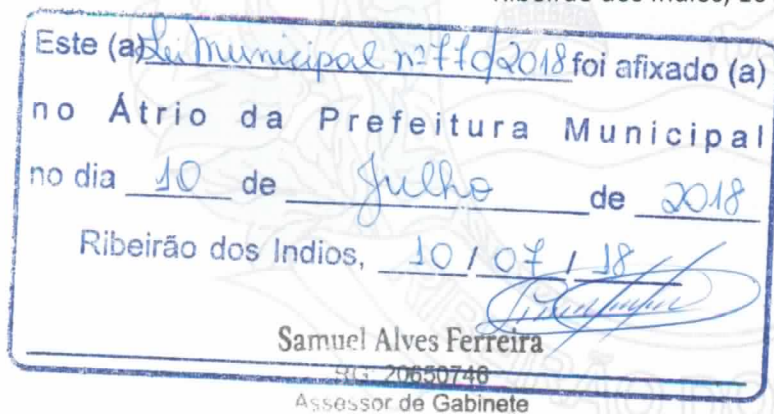 Este (a) Lei Municipal nº 770/2018 foi afixado (a)
no Átrio da Prefeitura Municipal
no dia 10 de Julho de 2018
Ribeirão dos Indios, 10 / 07 / 18
Samuel Alves Ferreira
RG: 20650746
Assessor de Gabinete